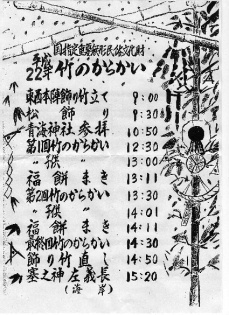 国指定重要無形民俗文化財
平成22年 竹のからかい
東西本陣飾り竹立て 9:00
松飾り 9:30
青海神社参拝 10:50
第1回竹のからかい 12:30
〃 子供 13:00
福餅まき 13:11
第2回竹のからかい 13:30
〃 子供 14:01
福餅まき 14:11
最終回竹のからかい 14:30
飾り竹直し 14:50
塞之神左義長 15:20
(海岸)